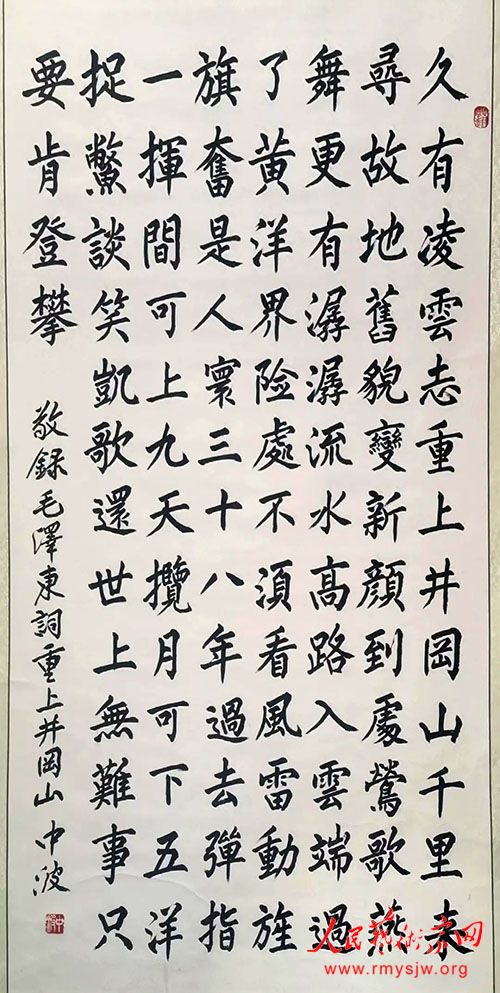 久有凌雲志重上井岡山千里来
尋故地舊貌變新顏到處鶯歌燕
舞更有潺潺流水高路入雲端過
了黃洋界险處不須看風雷動旌
旗奮是人寰三十八年過去彈指
一揮間可上九天攬月可下五洋
捉鱉談笑凱歌還世上無難事只
要肯登攀
敬録毛澤東詞重上井岡山 中波
人民藝術家网
www.rmysjw.org